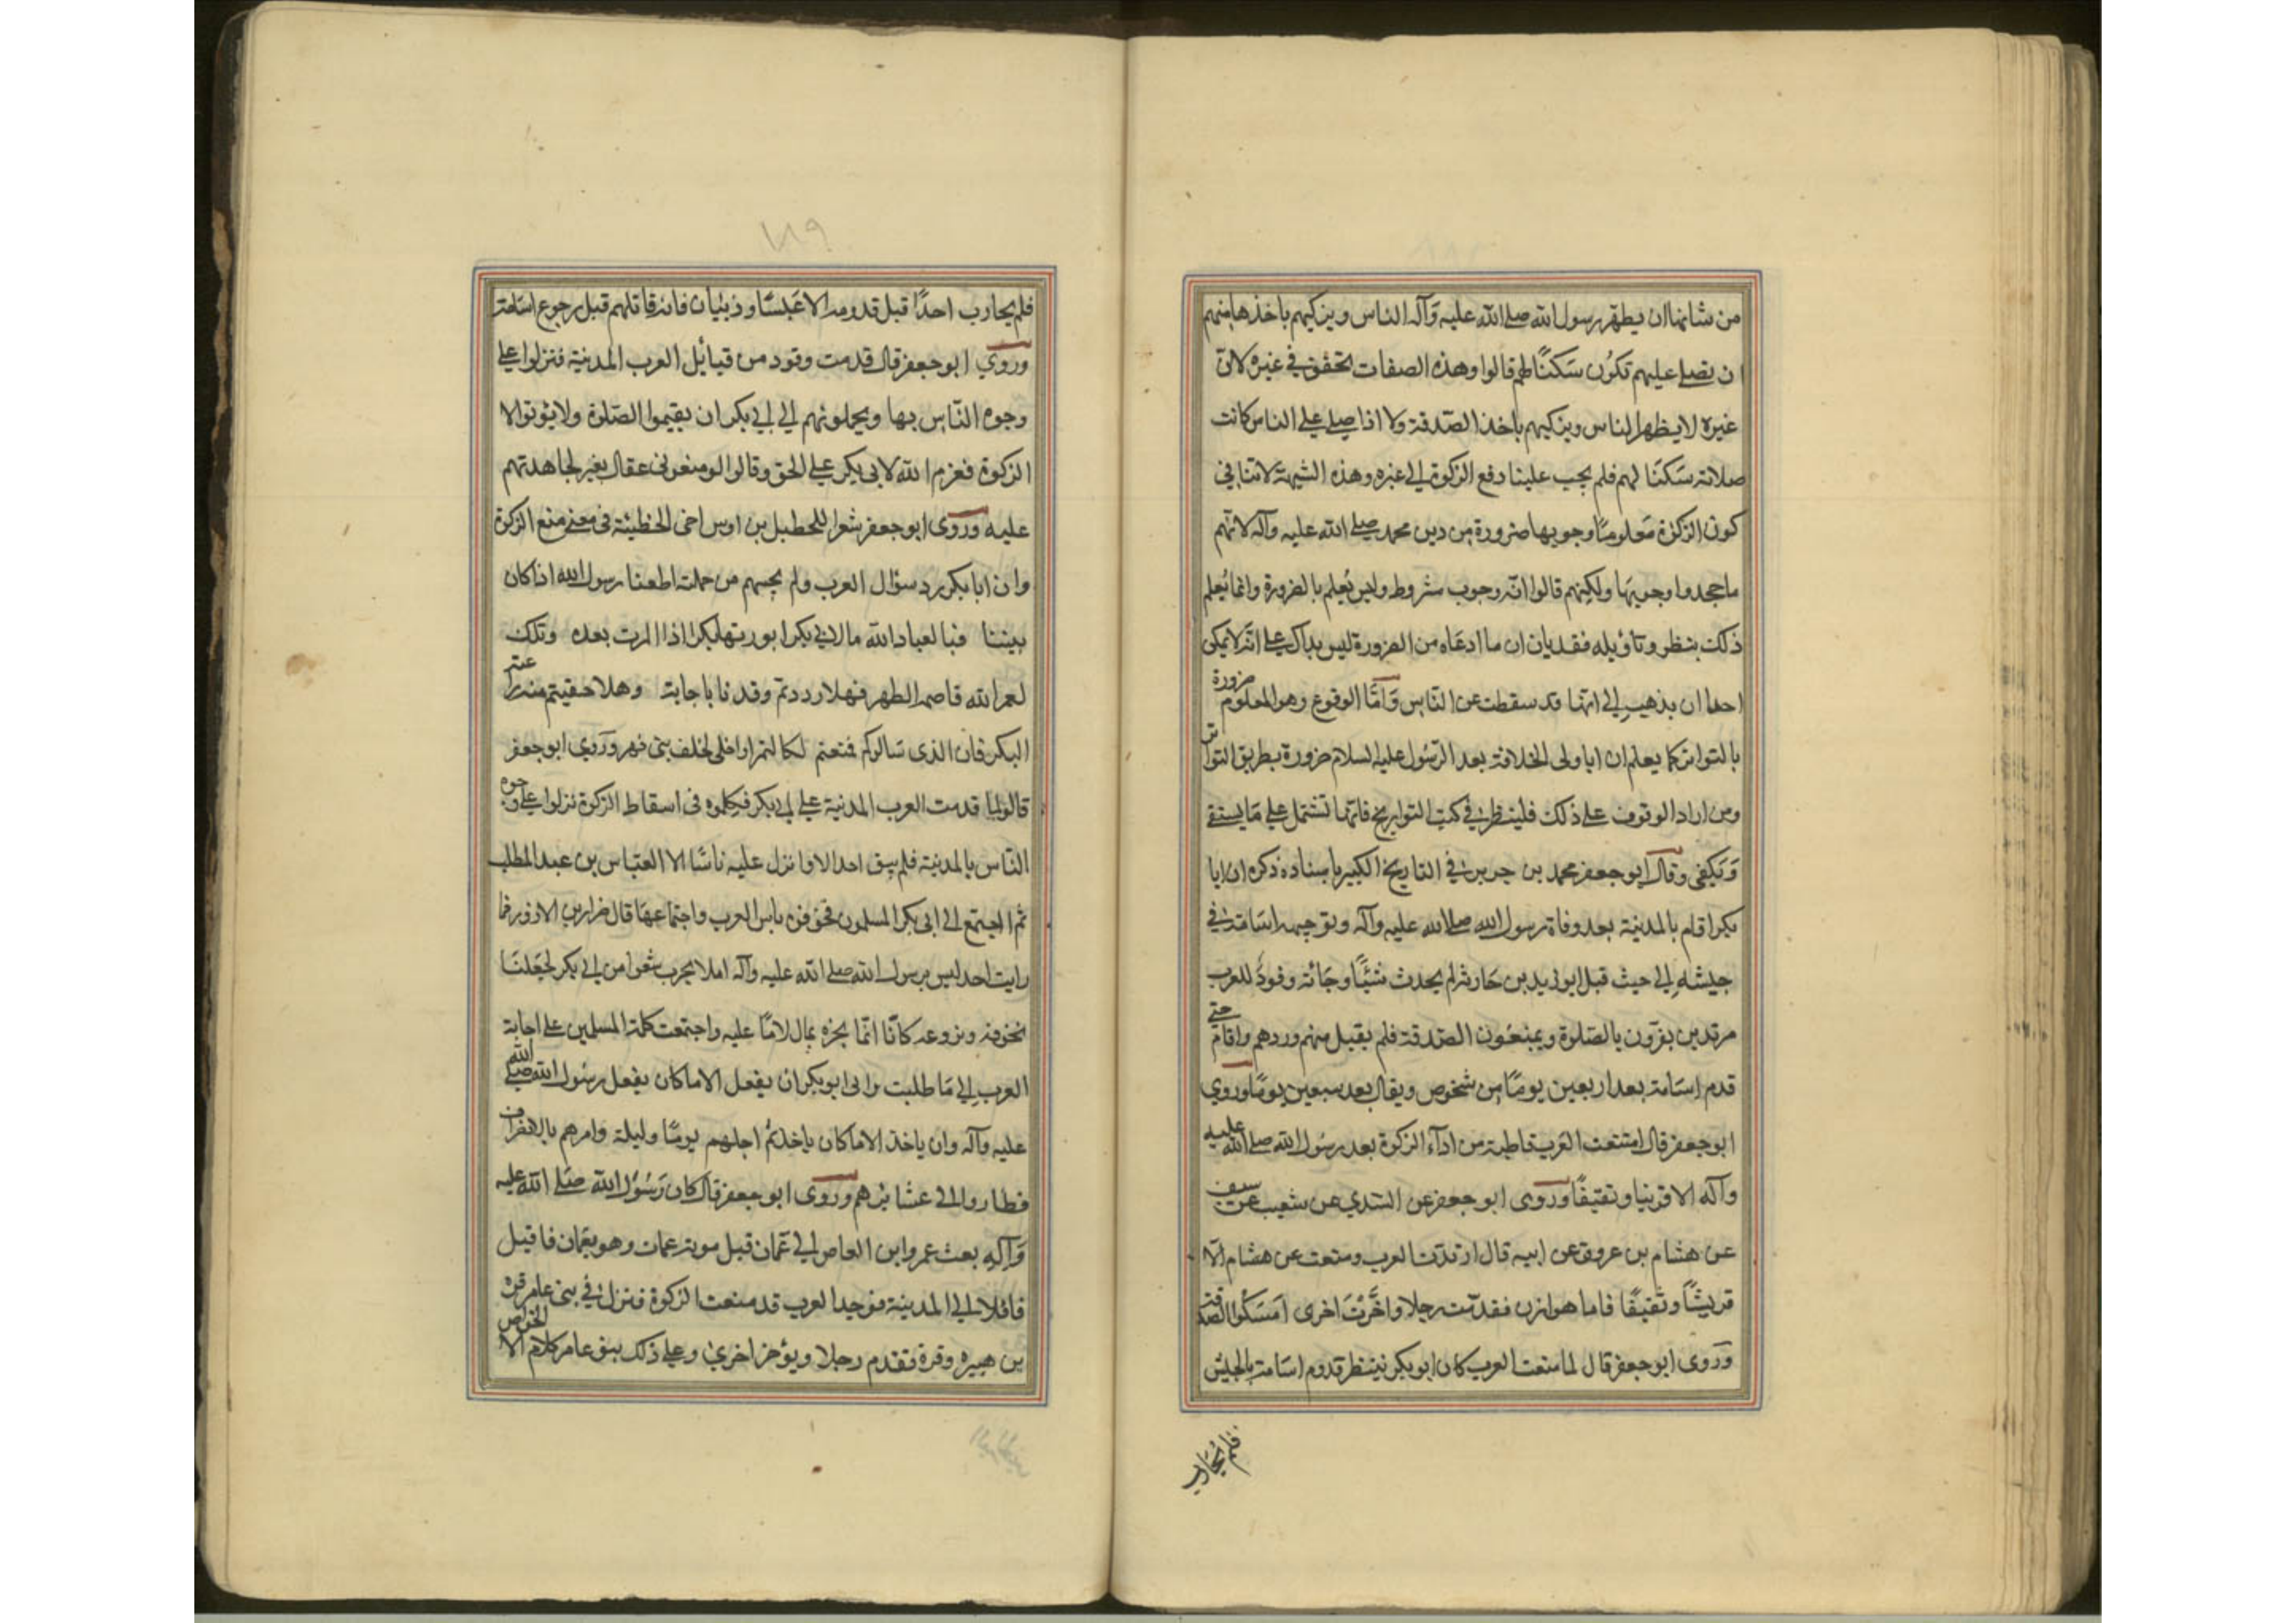 من شانها ان يطهر رسول الله صلى الله عليه وآله الناس ويزكيهم باخذها منهم
ان يصلي عليهم تكون سكنًا لهم قالوا وهذه الصفات تحقق في غيره لان
غيره لا يطهر الناس ويزكيهم باخذ الصدقة ولا اذا صلى على الناس كانت
صلاته سكنا لهم فلم يجب علينا دفع الزكوة الى غيره وهذه الشبهة لا تنافي
كون الزكوة معلومًا وجوبها ضرورة من دين محمد صلى الله عليه وآله لانهم
ما جحدوا وجوبها ولكنهم قالوا انه وجوب مشروط وليس يعلم بالضرورة وانما يعلم
ذلك بنظر وتأويله فقد بان ان ما ادعاه من الضرورة ليس بدال على انه لا يمكن
احدا ان يذهب الى انها قد سقطت عن الناس وامّا الوقوع وهو المعلوم ضرورة
بالتواتر كما يعلم ان ابا ولى الخلافة بعد الرسول عليه السلام ضرورة بطريق التواتر
ومن اراد الوقوف على ذلك فلينظر في كتب التواريخ فانها تشتمل على ما يستقي
ويكفي وقال ابو جعفر محمد بن جرير في التاريخ الكبير باسناده ذكره ان ابا
بكر اقام بالمدينة بعد وفاة رسول الله صلى الله عليه وآله وتوجيهه اسامة في
جيشه الى حيث قبل ابو زيد بن حارثه لم يحدث شيئًا وجائه وفود للعرب
مرتدين يقرون بالصلوة ويمنعون الصدقة فلم يقبل منهم وردهم واقام حتى
قدم اسامة بعد اربعين يومًا من شخوص ويقال بعد سبعين يومًا وروي
ابو جعفر قال امتنعت العرب قاطبة من اداء الزكوة بعد رسول الله صلى الله عليه
وآله الا قريشا وثقيفًا وروى ابو جعفر عن السدي عن شعيب عن سيف
عن هشام بن عروة عن ابيه قال ارتدت العرب ومنعت عن هشام الا
قريشًا وثقيفًا فاما هوازن فقدمت رجلا واخّرت اخرى امسكوا الصدقة
وروى ابو جعفر قال لما منعت العرب كان ابو بكر ينتظر قدوم اسامة بالجيش
فلم يحارب
٧٨٩
فلم يحارب احدًا قبل قدومه الا عبسًا وذبيان فانه قاتلهم قبل رجوع اسامة
وروي ابو جعفر قال قدمت وفود من قبائل العرب المدينة فنزلوا على
وجوه الناس بها ويحملونهم الى ابي بكر ان يقيموا الصلوة ولا يؤتوا الا
الزكوة فعزم الله لابي بكر على الحق وقالوا لو منعوني عقال بغير لجاهدتهم
عليه وروى ابو جعفر شعرا للحطيل بن اوس اخي الحطيئة في معنى منع الزكوة
وان ابا بكر رد سؤال العرب ولم يجبهم من حملت اطعنا رسول الله اذ كان
بيننا فيا لعباد الله ما لابي بكر ايورثها بكرًا اذا مت بعده وتلك
لعمر الله قاصمة الظهر فهلا رددتم وفدنا باجابة وهلا
البكر فان الذي سالوكم فمنعتم لكالتمر او احلى لخلف بني فهر وروي ابو جعفر
قال ولما قدمت العرب المدينة على ابي بكر فكلموه في اسقاط الزكوة نزلوا على وجوه
الناس بالمدينة فلم يبق احد الا وانزل عليه ناسًا الا العباس بن عبد المطلب
ثم اجتمع الى ابي بكر المسلمون باس العرب واجتماعها قال ضرار بن الازور فما
رايت احد ليس برسول الله صلى الله عليه وآله املا بحرب شعوا من ابي بكر لجعلنا
نخوفه ونروعه كانّا انما نخبره بما لا علينا واجتمعت كلمة المسلمين على اجابة
العرب الى ما طلبت وابى ابو بكر ان يفعل الا ما كان يفعل رسول الله صلى الله
عليه وآله وان ياخذ الا ما كان ياخذ ثم اجلهم يومًا وليلة وامرهم بالانصراف
فطاروا الى عشائرهم وروى ابو جعفر قال كان رسول الله صلى الله عليه
وآله بعث عمرو ابن العاص الى عمان قبل موته وهو بعمان فاقبل
قافلا الى المدينة فوجد العرب قد منعت الزكوة فنزل في بني عامر قرة
بن هبيره وقرة تقدم رجلا ويؤخر اخرى وعلى ذلك بنو عامر كلام الا الخواص